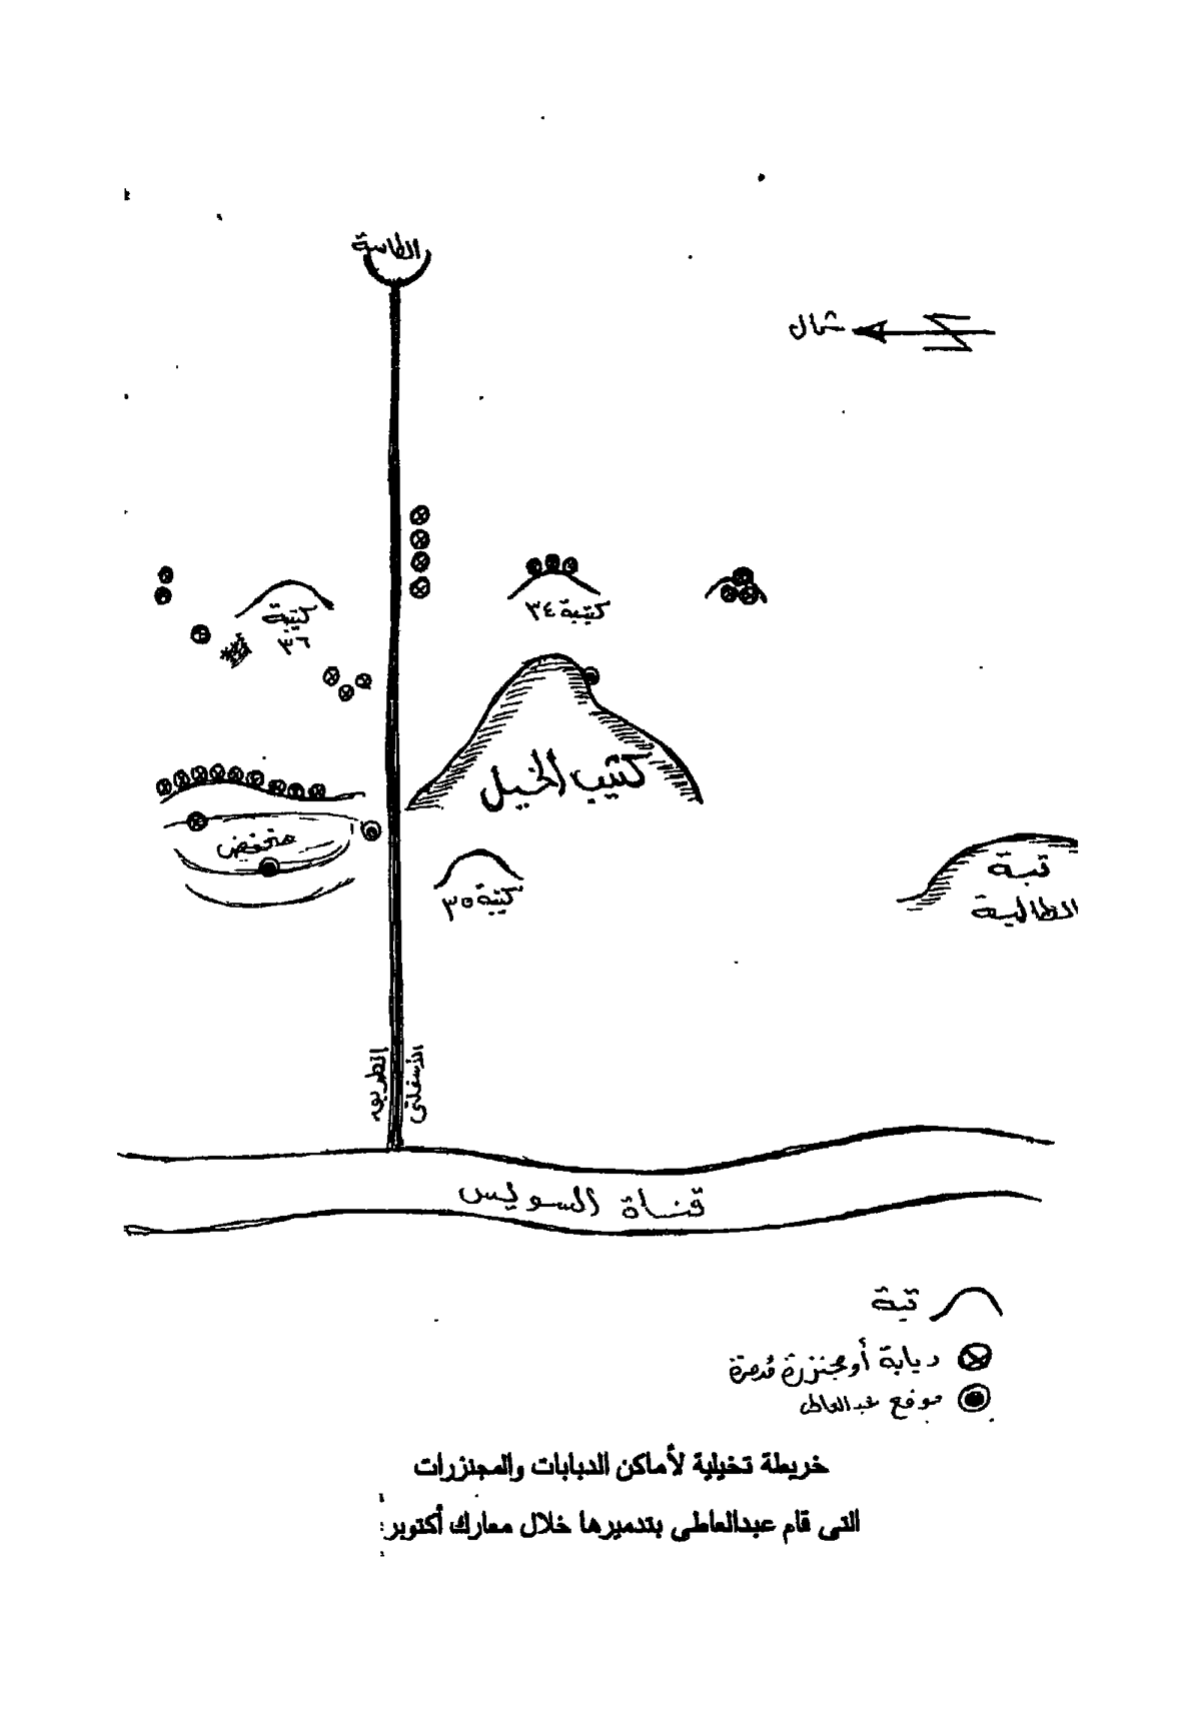 الطاسة
شمال
كتيبة
٣٦
كتيبة ٣٤
كثيب الخيل
منخفض
كتيبة ٣٥
تبة
الطالية
الطريق
الأسفلتى
قناة السويس
تبة
دبابة أو مجنزرة مدمرة
موقع عبدالعاطى
خريطة تخيلية لأماكن الدبابات والمجنزرات
التى قام عبدالعاطى بتدميرها خلال معارك أكتوبر: